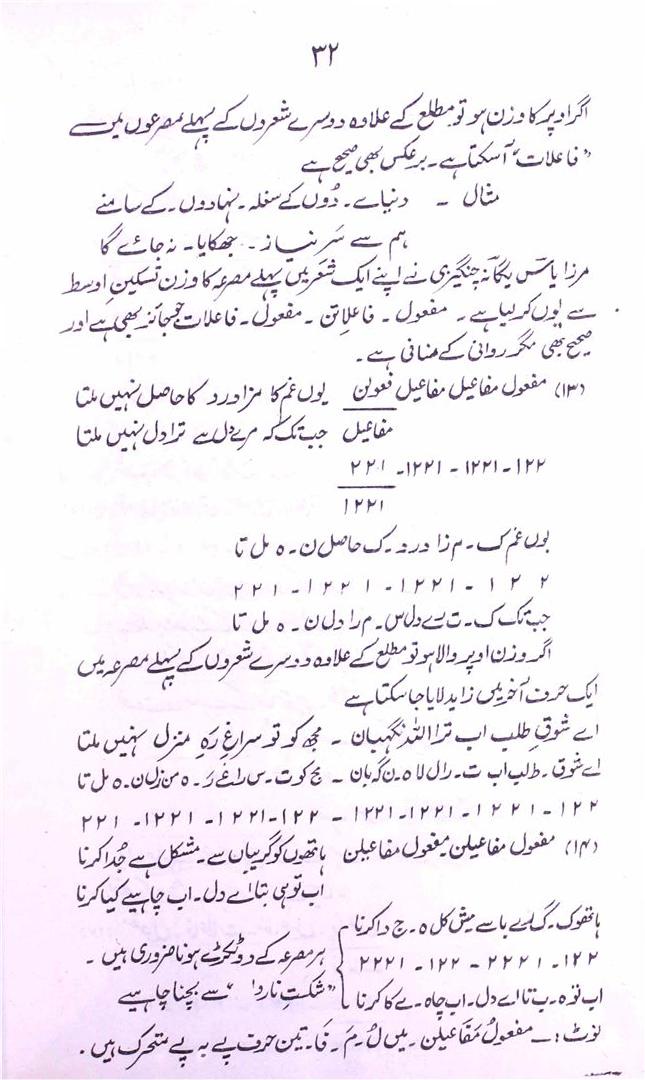 ۳۲
اگر اوپر کا وزن ہو تو مطلع کے علاوہ دوسرے شعروں کے پہلے مصرعوں میں
"فاعلات" آسکتا ہے۔ برعکس بھی صحیح ہے
مثال ۔ دنیاے۔ دُوں کے سفلہ۔ نہادوں۔ کے سامنے
ہم سے سَرِ نیاز۔ جھکایا۔ نہ جائے گا
مرزا یاسؔ یگانہ چنگیزی نے اپنے ایک شعر میں پہلے مصرعہ کا وزن تسکینِ اوسط
سے یوں کر لیا ہے۔ مفعول۔ فاعلاتن۔ مفعول۔ فاعلات جو جائز بھی ہے اور
صحیح بھی مگر روانی کے منافی ہے۔
(۱۳) مفعول مفاعیل مفاعیل فعولن یوں غم کا مزا درد کا حاصل نہیں ملتا
مفاعیل جب تک کہ مرے دل سے ترا دل نہیں ملتا
۱۲۲۔ ۱۲۲۱ ۔ ۱۲۲۱۔ ۲۲۱
۱۲۲۱
یوں غم ک۔ م زا درد۔ ک حاصل ن۔ ہ مل تا
۲ ۲ ۱ ۔ ۱۲۲۱۔ ۱ ۲ ۲ ۱ ۔ ۱ ۲ ۲
جب تک ک۔ ت ے دل س۔ م را دل ن۔ ہ مل تا
اگر وزن اوپر والا ہو تو مطلع کے علاوہ دوسرے شعروں کے پہلے مصرعہ میں
ایک حرف آخر میں زاید لایا جا سکتا ہے
اے شوقِ طلب اب ترا اللہ نگہبان ۔ مجھ کو تو سراغِ رَہِ منزل نہیں ملتا
اے شوق۔ طلب اب ت۔ رال لاہ۔ ن گہ بان ۔ مج کوت۔ س راغے رَ۔ ہ من زل ن۔ ہ مل تا
۱۲۲ ۔ ۱ ۲ ۲ ۱ ۔ ۱۲۲۱۔ ۱۲۲۱ ۔ ۱۲۲۔ ۱۲۲۱۔ ۱۲۲۱۔ ۲۲۱
(۱۴) مفعول مفاعیلن مفعول مفاعیلن ہاتھوں کو گریباں سے۔ مشکل ہے جُدا کرنا
اب تو ہی بتا اے دل۔ اب چاہیے کیا کرنا
ہاتھوک۔ گ رے با سے مش کل ہ۔ ج دا کرنا
۱۲۲۔ ۲۲۲۱ ۔ ۱۲۲ ۔ ۲۲۲۱ ہر مصرعہ کے دو ٹکڑے ہونا ضروری ہیں۔
اب تو ہ۔ ب تا اے دل۔ اب چاہ۔ ے کا کرنا "شکستِ ناروا" سے بچنا چاہیے
نوٹ:۔ مفعولُ مَفَاعیلن۔ میں لُ۔ مَ۔ فَا۔ تین حرف پے بہ پے متحرک ہیں۔